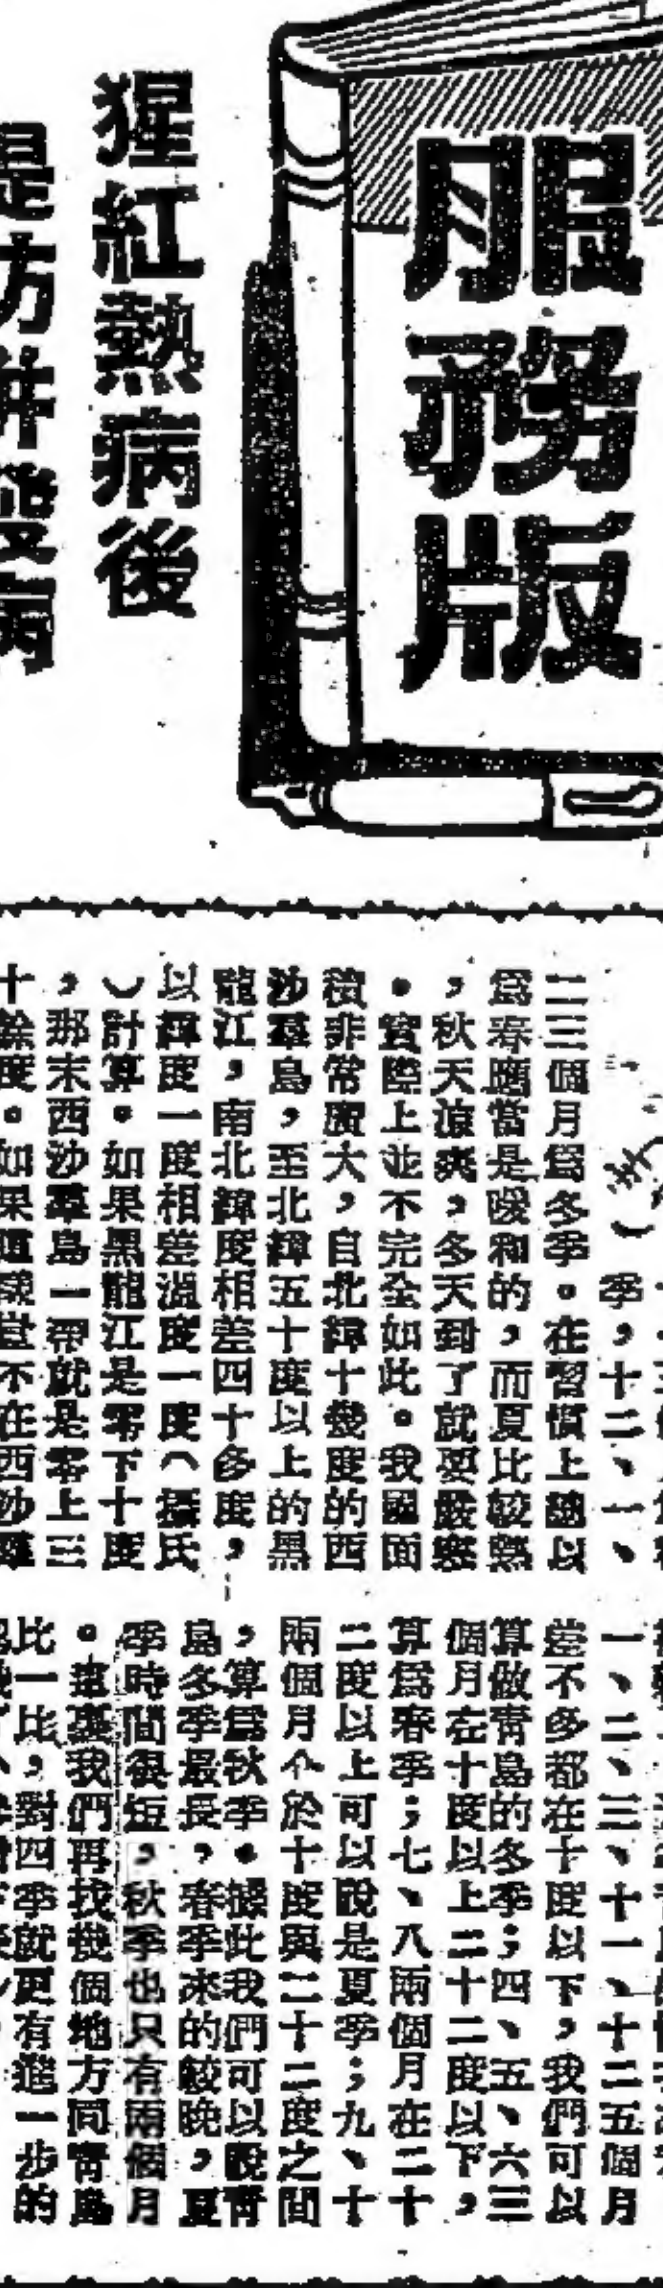 服務版
猩紅熱病後
提防併發病
季，十二、一、
二三個月爲冬季。在習慣上總以
爲春應當是暖和的，而夏比較熱
，秋天涼爽，冬天到了就要嚴寒
。實際上並不完全如此。我國面
積非常廣大，自北緯十幾度的西
沙羣島，至北緯五十度以上的黑
龍江，南北緯度相差四十多度，
以緯度一度相差溫度一度（攝氏
）計算。如果黑龍江是零下十度
，那末西沙羣島一帶就是零上三
十餘度。如果這樣豈不在西沙羣
一、二、三、十一、十二五個月
差不多都在十度以下，我們可以
算做青島的冬季；四、五、六三
個月在十度以上二十二度以下，
算爲春季；七、八兩個月在二十
二度以上可以說是夏季；九、十
兩個月介於十度與二十二度之間
，算爲秋季。據此我們可以說青
島冬季最長，春季來的較晚，夏
季時間很短，秋季也只有兩個月
。這裏我們再找幾個地方同青島
比一比，對四季就更有進一步的